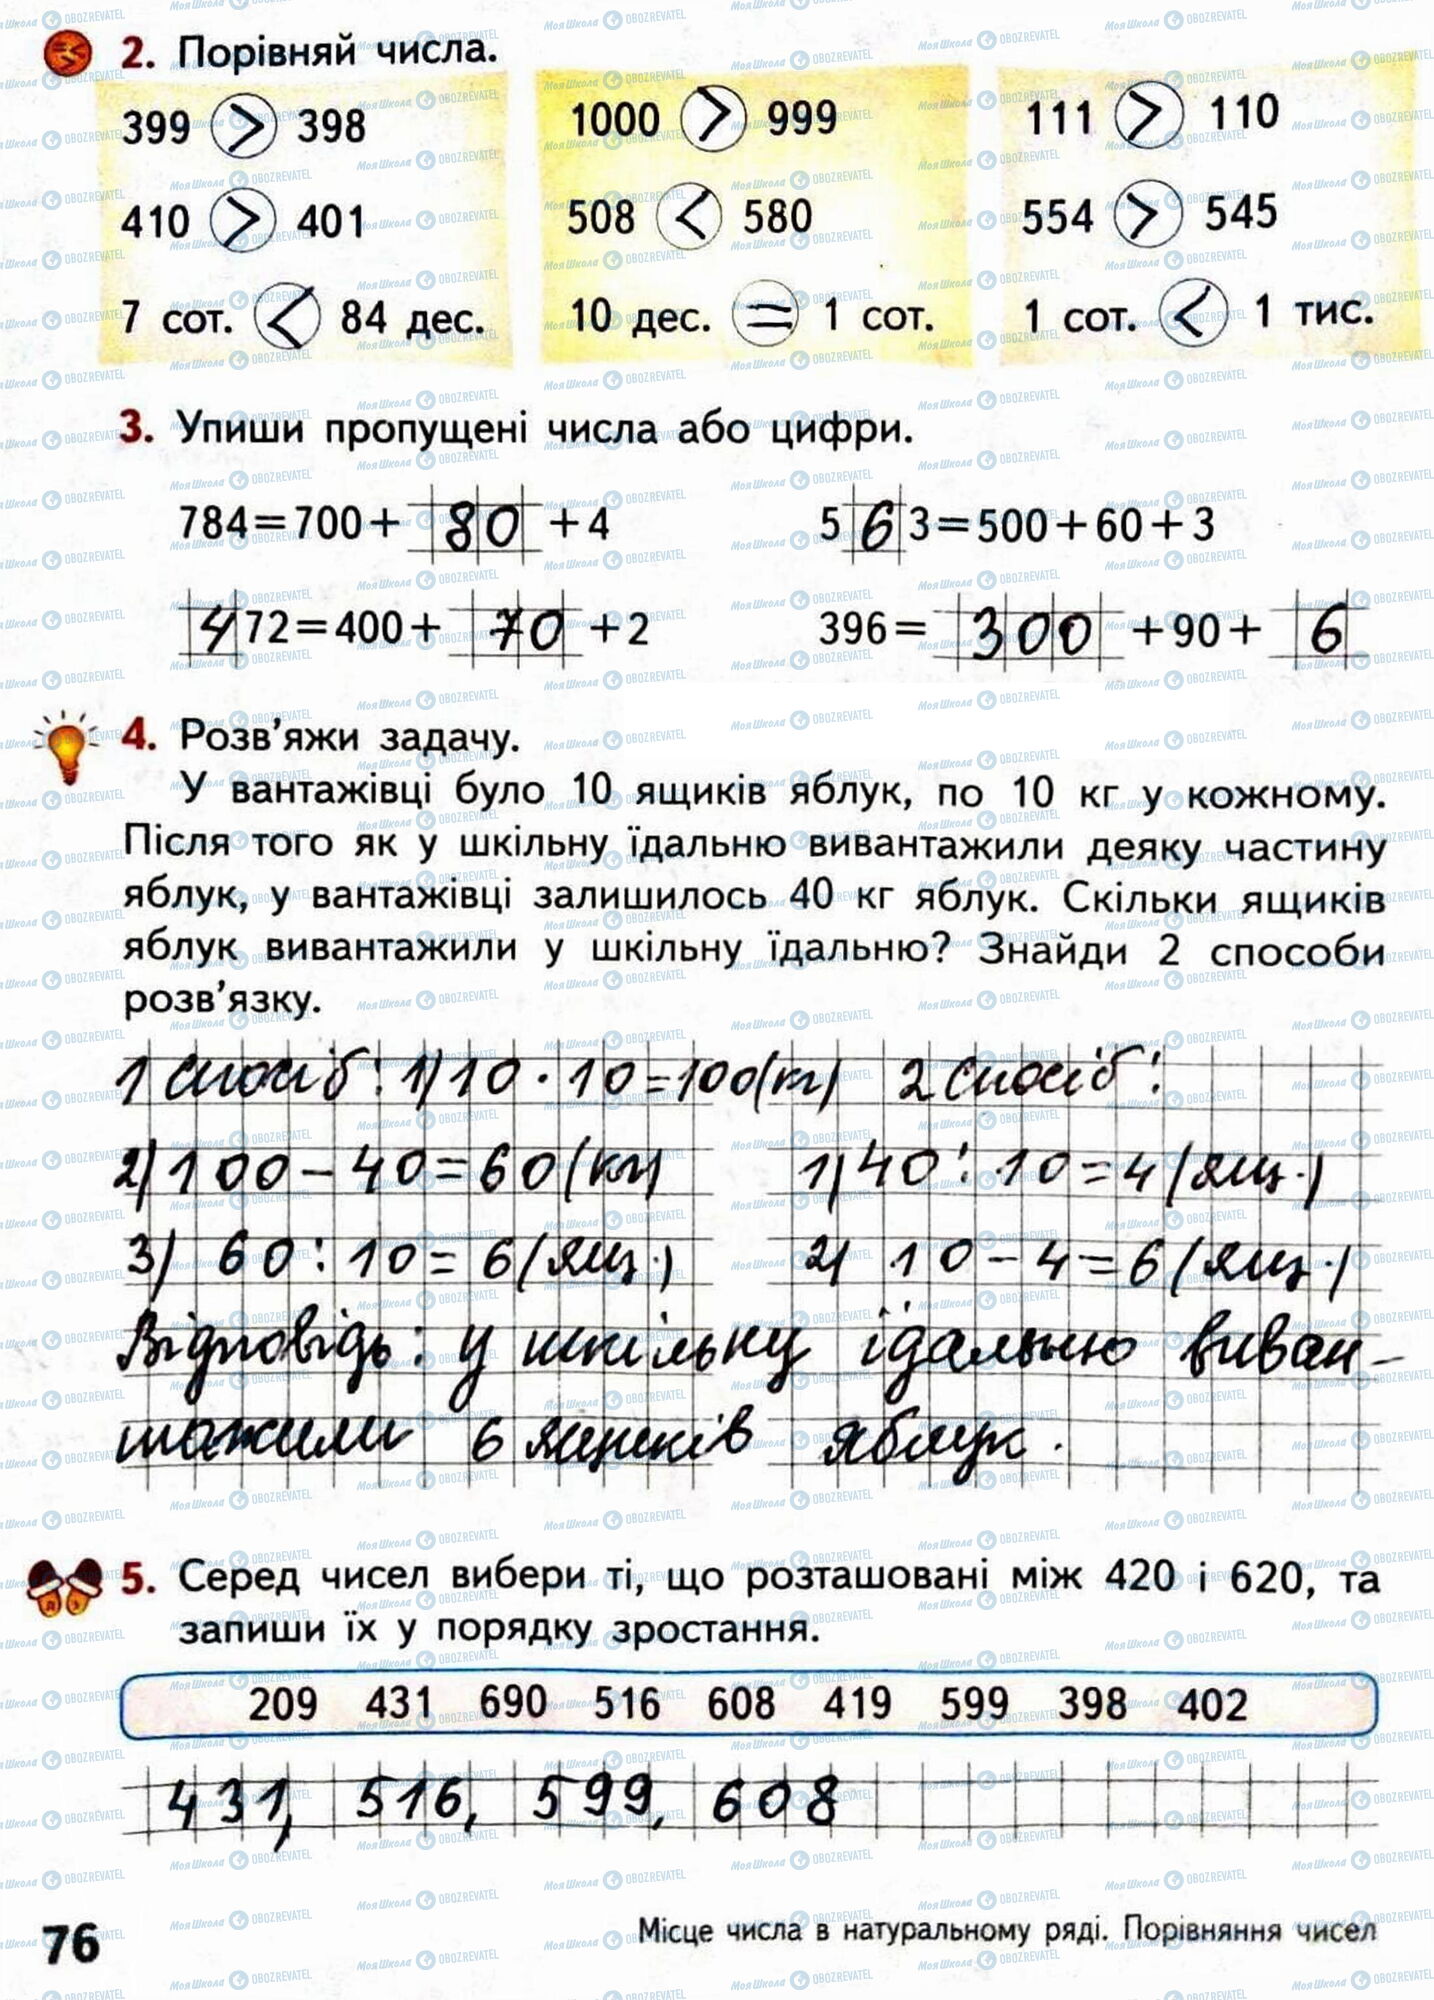 2. Порівняй числа.
399 > 398 1000 > 999 111 > 110
410 > 401 508 < 580 554 > 545
7 сот. < 84 дес. 10 дес. = 1 сот. 1 сот. < 1 тис.
3. Упиши пропущені числа або цифри.
784=700+ 80 +4 5 6 3=500+60+3
4 72=400+ 70 +2 396= 300 +90+ 6
4. Розв’яжи задачу.
У вантажівці було 10 ящиків яблук, по 10 кг у кожному.
Після того як у шкільну їдальню вивантажили деяку частину
яблук, у вантажівці залишилось 40 кг яблук. Скільки ящиків
яблук вивантажили у шкільну їдальню? Знайди 2 способи
розв’язку.
1 спосіб: 1) 10 · 10=100(кг) 2 спосіб:
2) 100 – 40=60(кг) 1) 40 : 10=4(ящ.)
3) 60 : 10= 6(ящ.) 2) 10 – 4=6(ящ.)
Відповідь: у шкільну їдальню виван-
тажили 6 ящиків яблук.
5. Серед чисел вибери ті, що розташовані між 420 і 620, та
запиши їх у порядку зростання.
209 431 690 516 608 419 599 398 402
431, 516, 599, 608
76
Місце числа в натуральному ряді. Порівняння чисел
МояШкола OBOZREVATEL